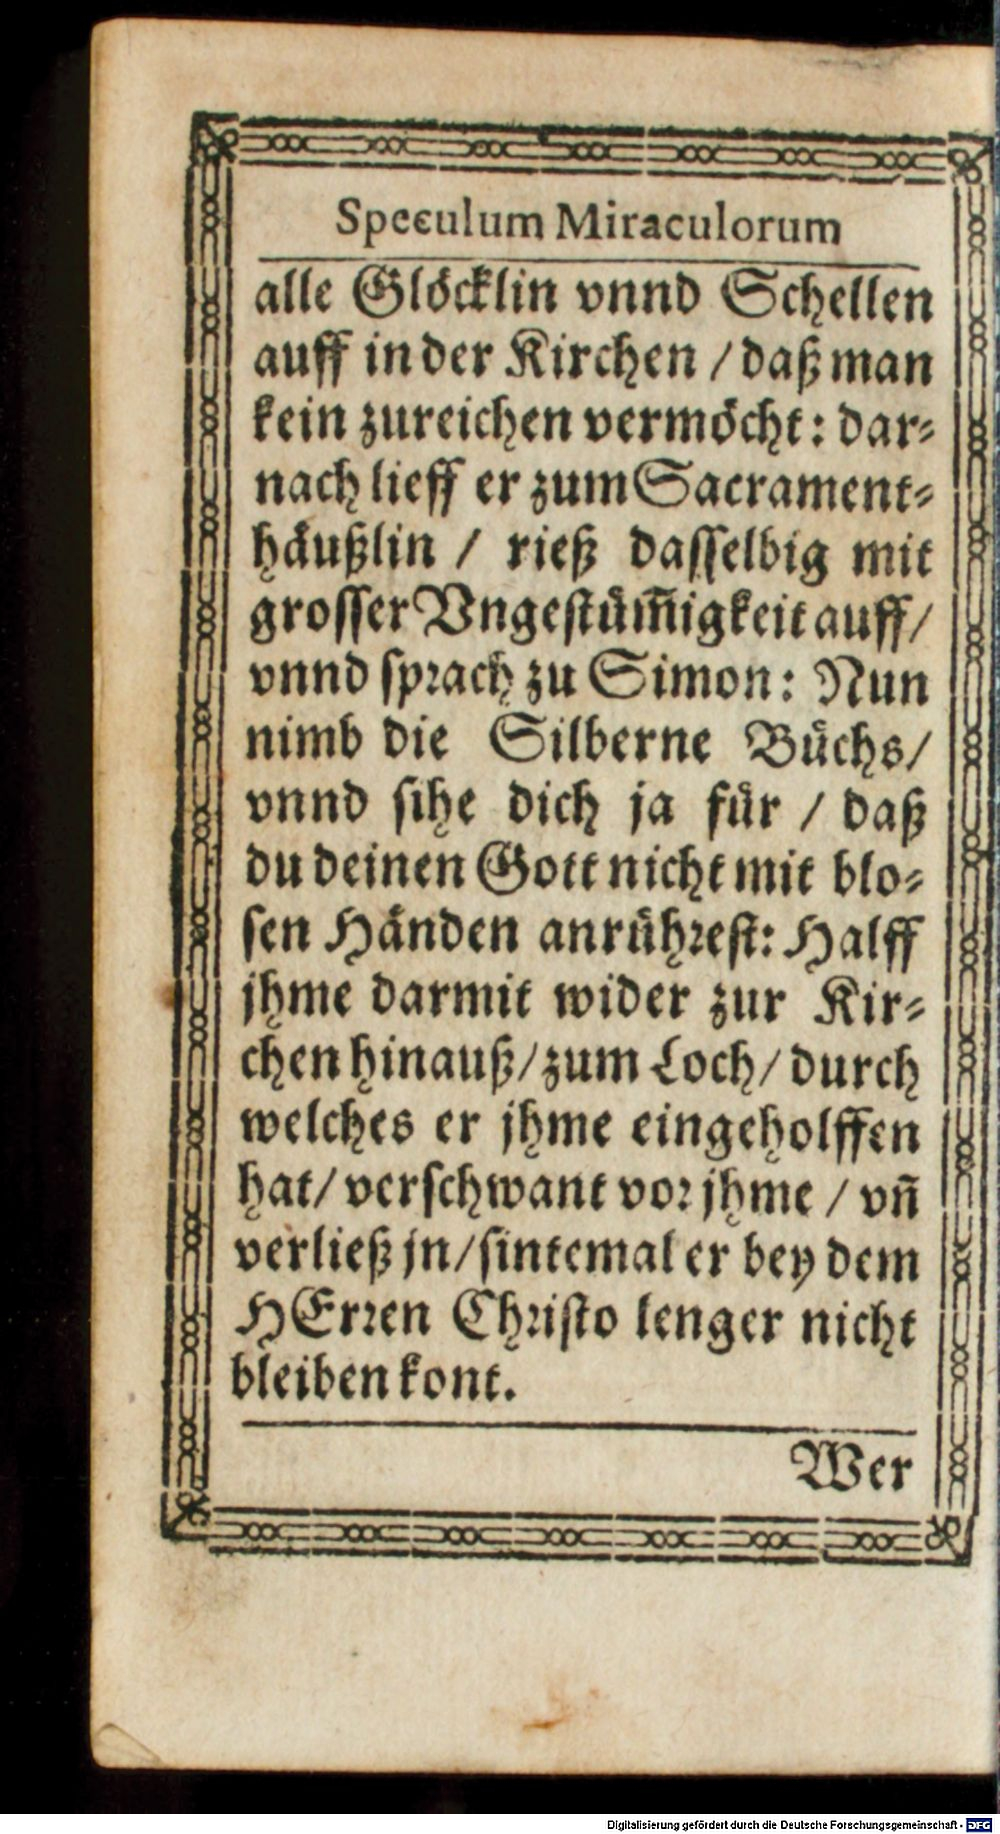 Speculum Miraculorum
alle Glöcklin vnnd Schellen
auff in der Kirchen / daß man
kein zureichen vermöcht: dar-
nach lieff er zum Sacrament-
häußlin / rieß dasselbig mit
grosser Vngestüm̃igkeit auff /
vnnd sprach zu Simon: Nun
nimb die Silberne Büchs /
vnnd sihe dich ja für / daß
du deinen Gott nicht mit blo-
sen Händen anrührest: Halff
jhme darmit wider zur Kir-
chen hinauß / zum Loch / durch
welches er jhme eingeholffen
hat / verschwant vor jhme / vñ
verließ jn / sintemal er bey dem
HErren Christo lenger nicht
bleiben kont.
Wer
Digitalisierung gefördert durch die Deutsche Forschungsgemeinschaft - DFG